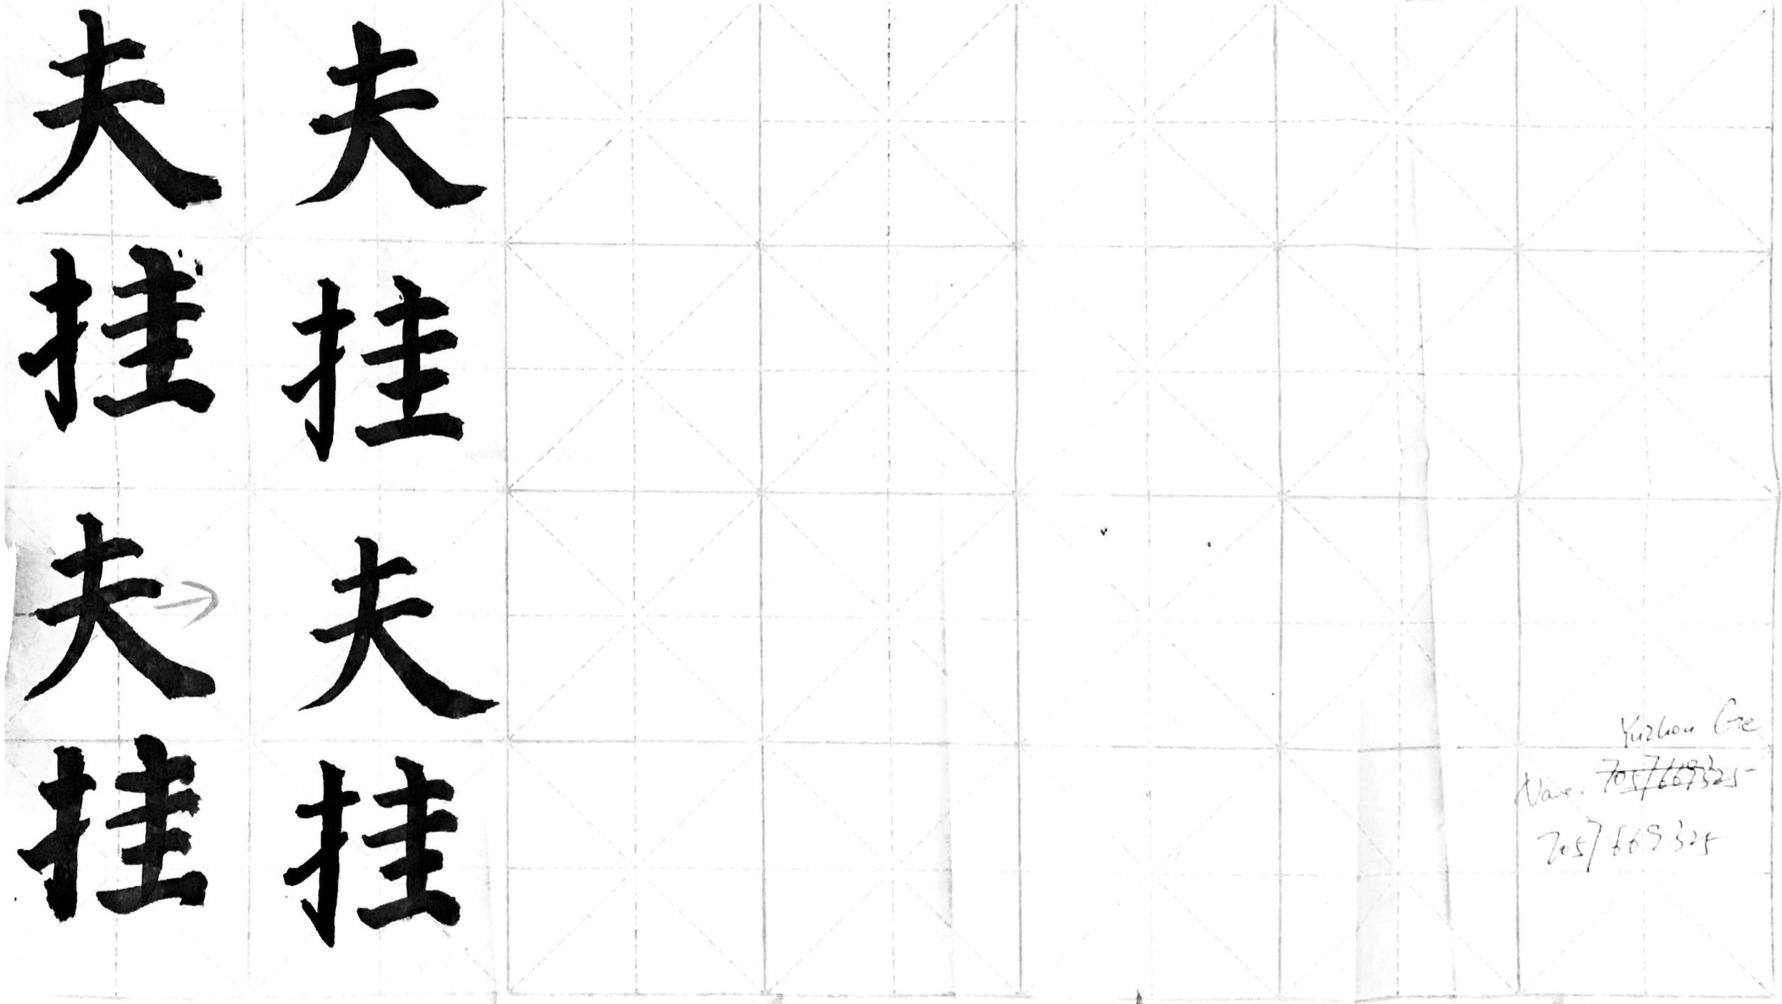 夫 夫
挂 挂
夫 → 夫
挂 挂
Yuzhou Ge
Name. 7057669325
7057669325